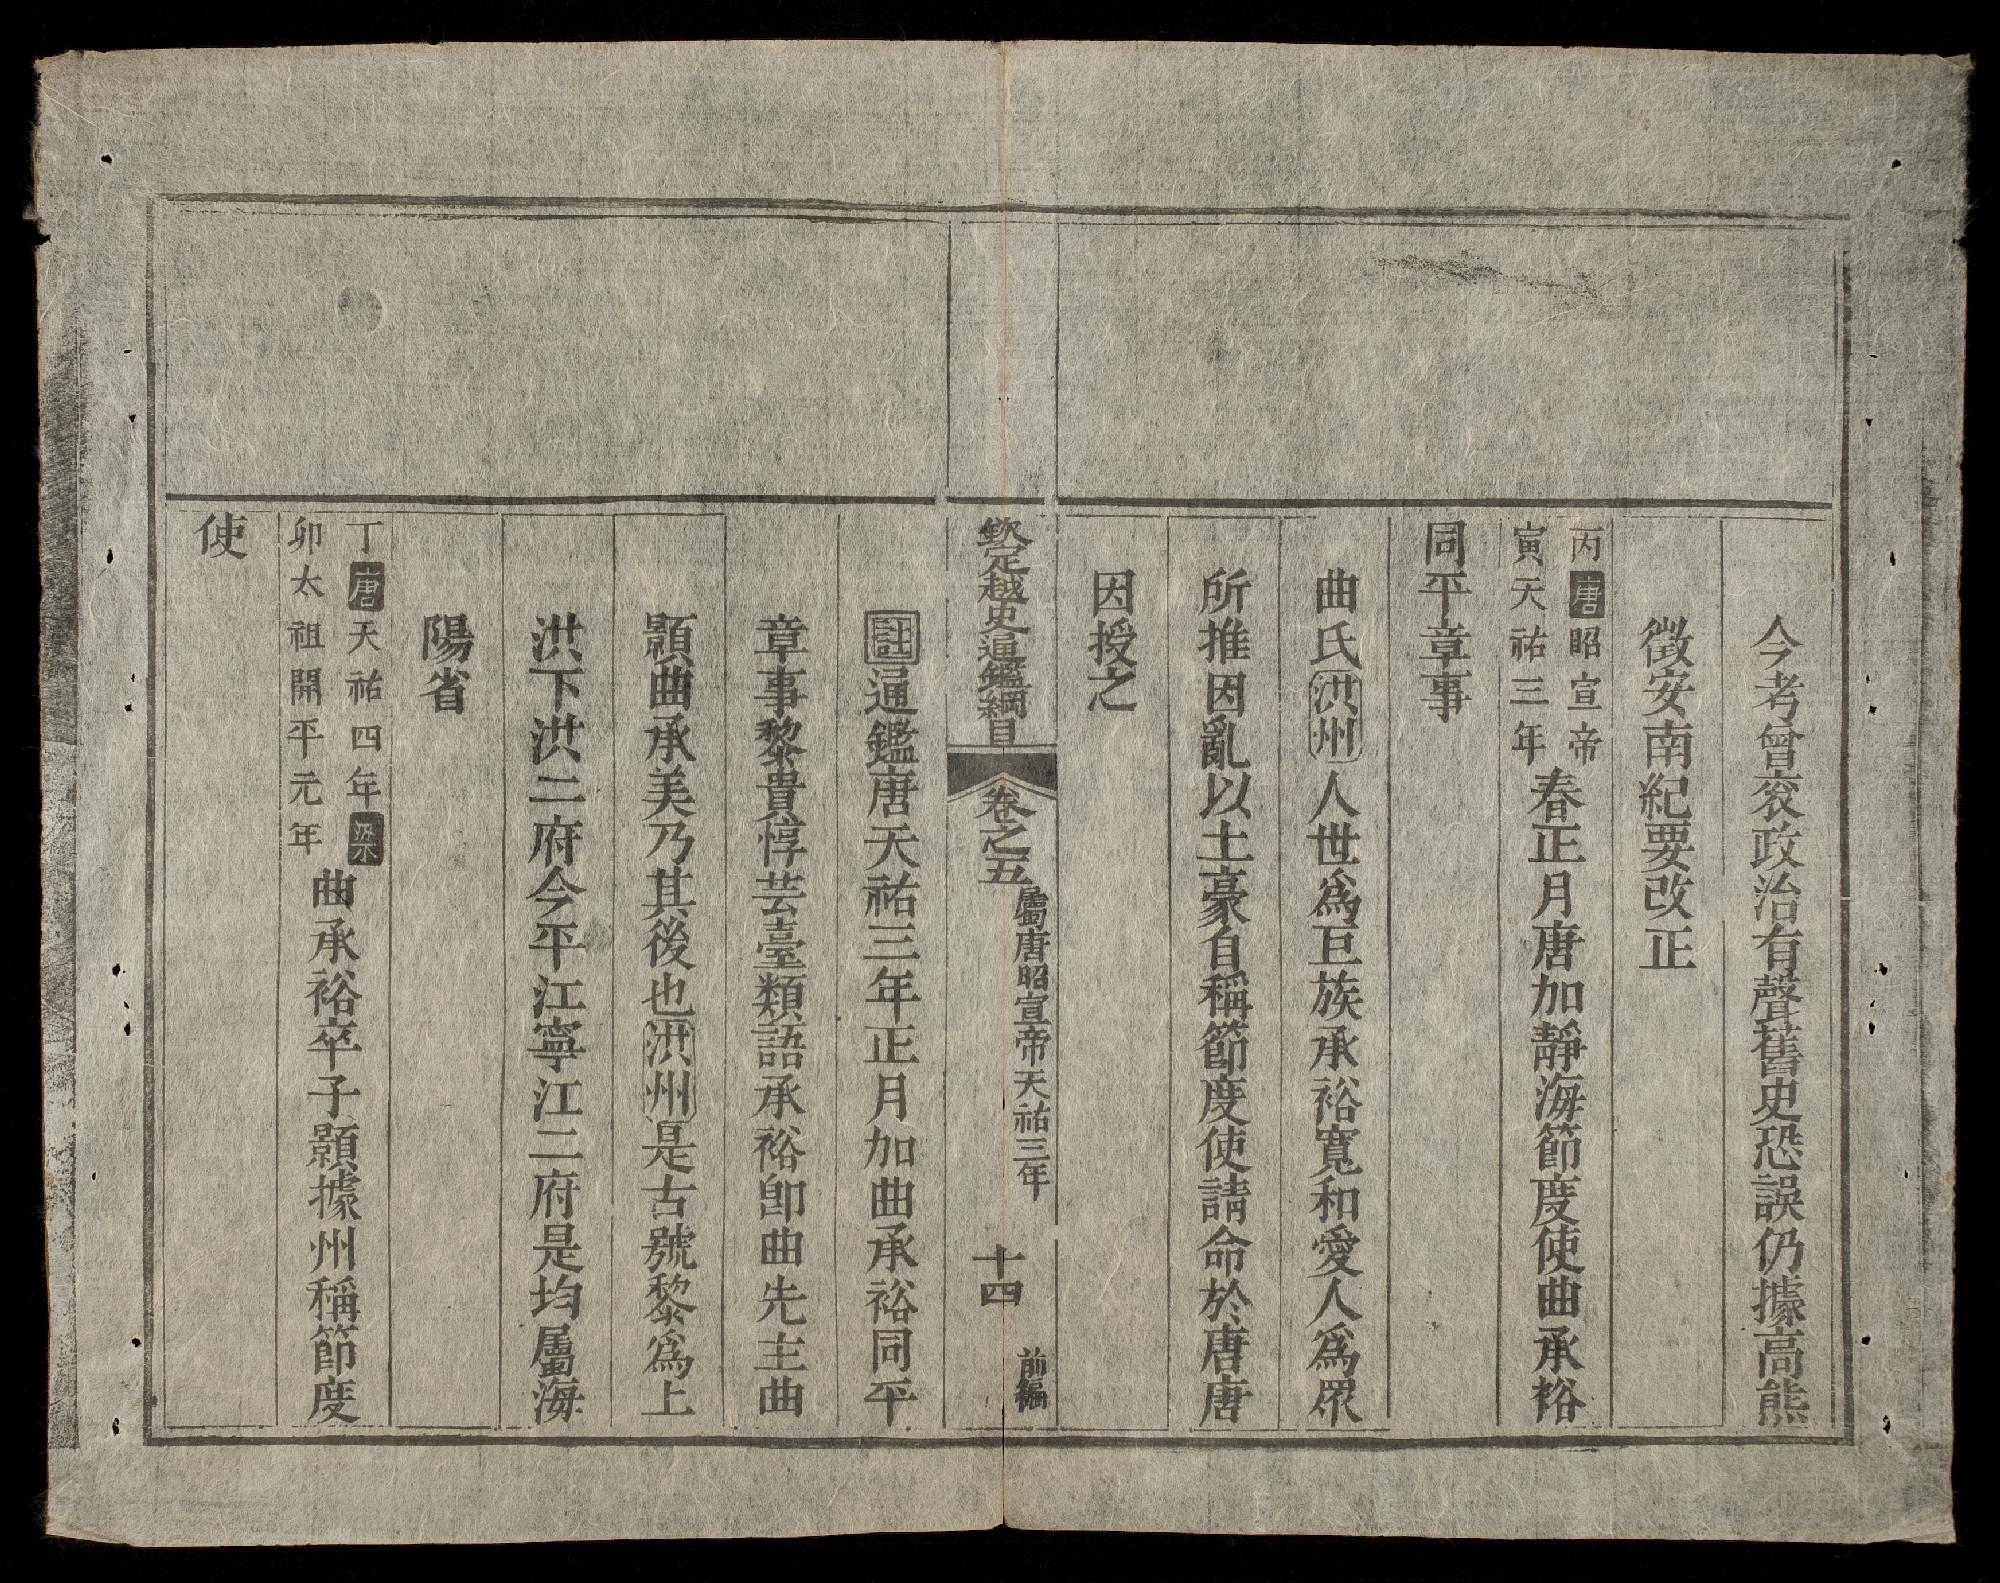 今考曾袞政治有聲舊史恐誤仍據高熊
徵安南紀要改正
丙唐昭宣帝
寅天祐三年
春正月唐加靜海節度使曲承裕
同平章事
曲氏洪州人世爲巨族承裕寬和愛人爲眾
所推因亂以土豪自稱節度使請命於唐唐
因授之
欽定越史通鑑綱目
卷之五
屬唐昭宣帝天祐三年
十四
前編
註通鑑唐天祐三年正月加曲承裕同平
章事黎貴惇芸臺類語承裕卽曲先主曲
顥曲承美乃其後也洪州是古號黎爲上
洪下洪二府今平江寧江二府是均屬海
陽省
丁唐天祐四年梁
卯太祖開平元年
曲承裕卒子顥據州稱節度
使